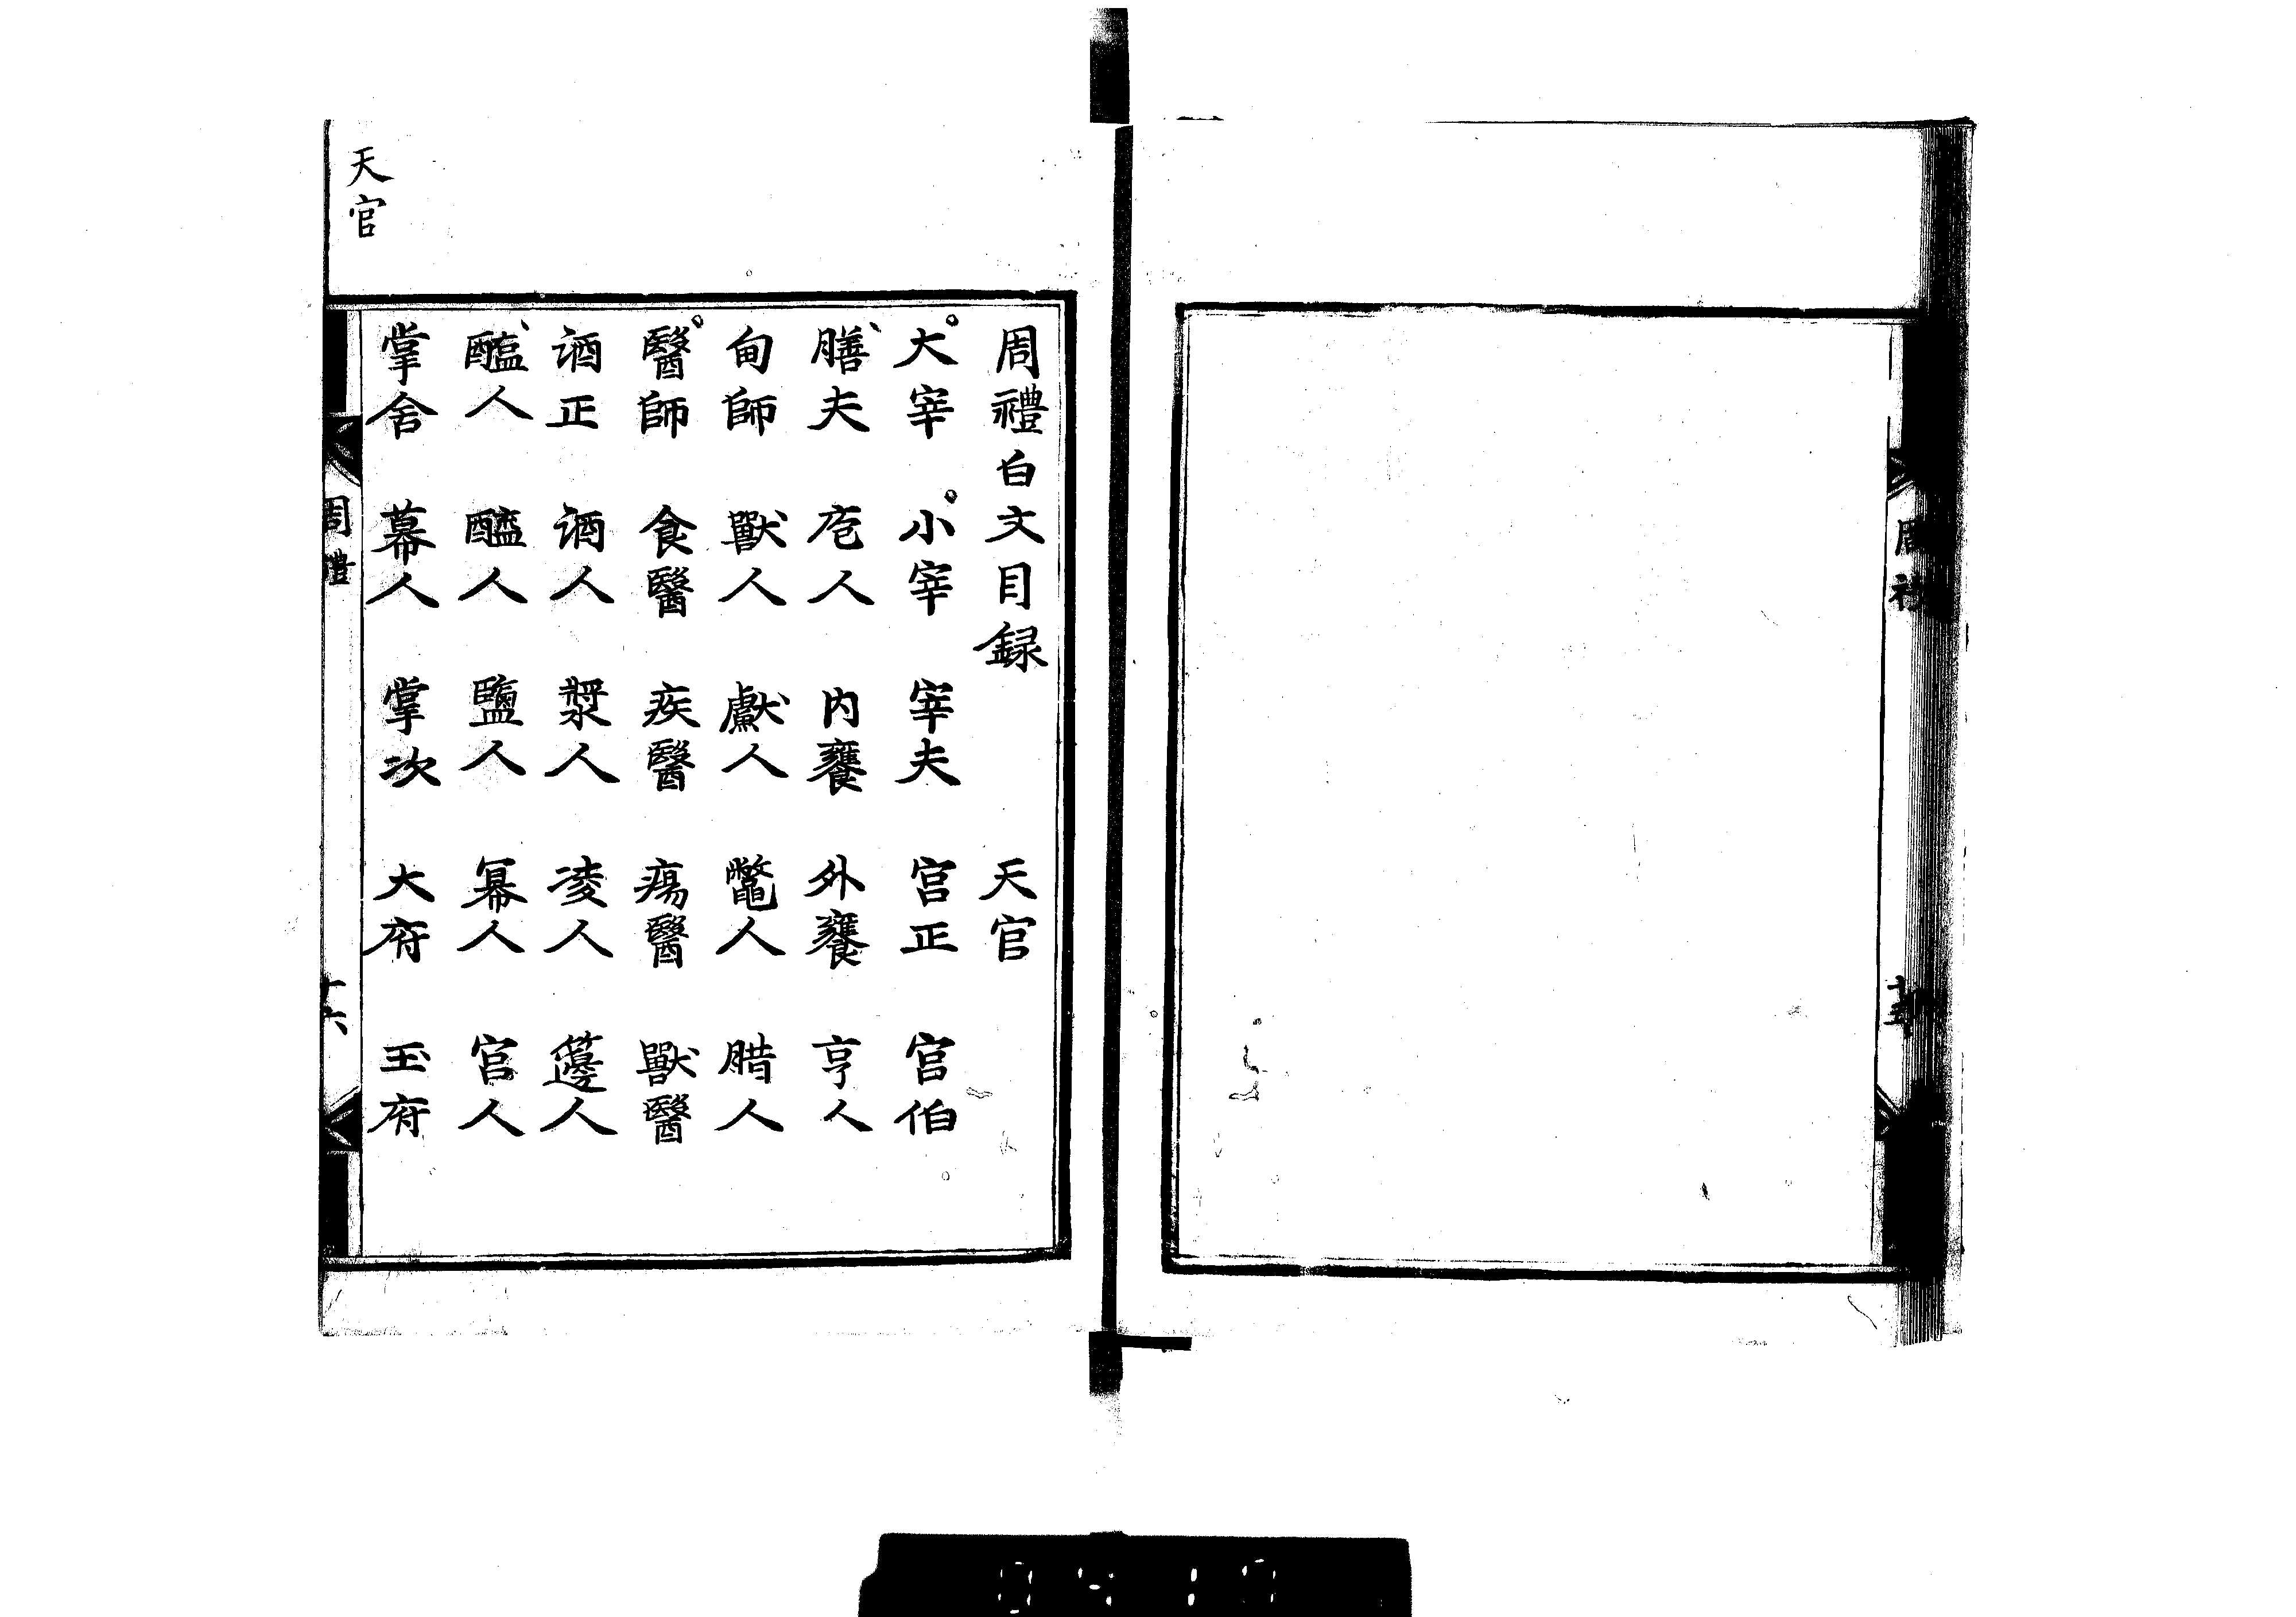 周禮白文目録 天官
大宰 小宰 宰夫 宫正 宫伯
膳夫 庖人 内饔 外饔 亨人
甸師 獸人 䱷人 鼈人 腊人
醫師 食醫 疾醫 瘍醫 獸醫
酒正 酒人 漿人 凌人 籩人
醢人 醯人 鹽人 冪人 宫人
掌舍 幕人 掌次 大府 玉府
天官
周禮